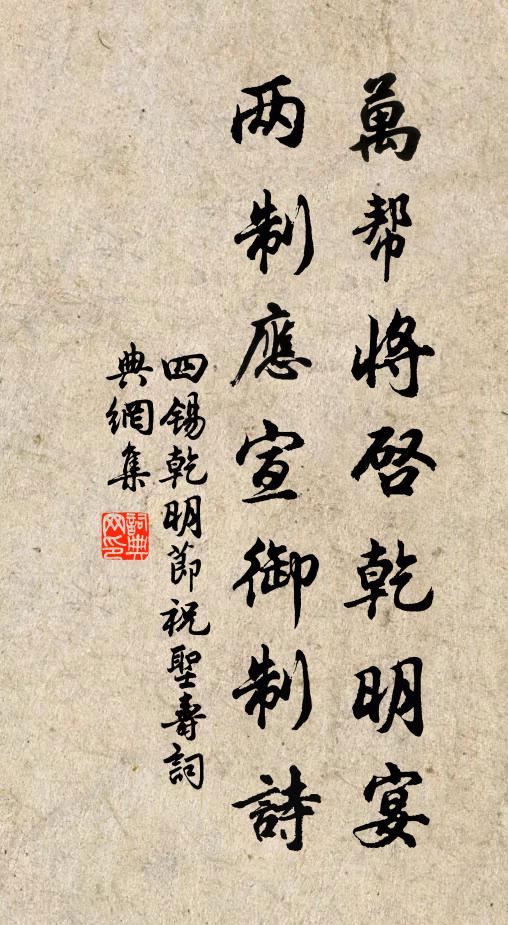 萬帮將啓乾明宴
两制應宣御制詩
四锡乾明節祝聖壽詞
典網集
詞典网印